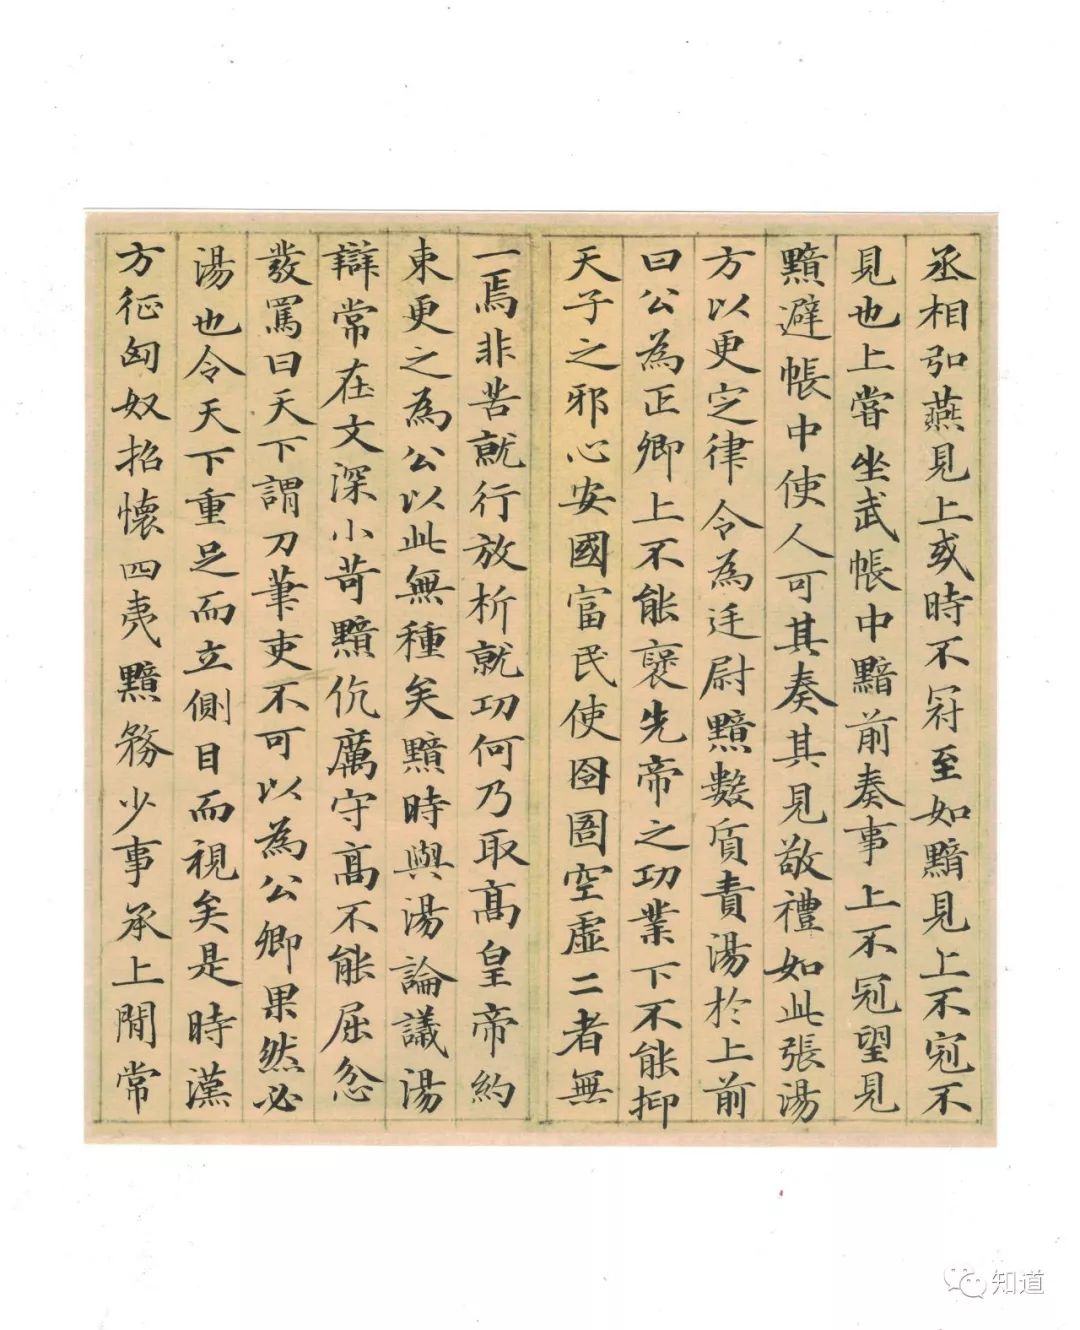 丞相弘燕見上或時不冠至如黯見上不冠不
見也上嘗坐武帳中黯前奏事上不冠望見
黯避帳中使人可其奏其見敬禮如此張湯
方以更定律令為廷尉黯數質責湯於上前
曰公為正卿上不能褒先帝之功業下不能抑
天子之邪心安國富民使囹圄空虛二者無
一焉非苦就行放析就功何乃取髙皇帝約
束更之為公以此無種矣黯時與湯論議湯
辯常在文深小苛黯伉厲守髙不能屈忿
發罵曰天下謂刀筆吏不可以為公卿果然必
湯也令天下重足而立側目而視矣是時漢
方征匈奴招懷四夷黯務少事承上閒常
知道